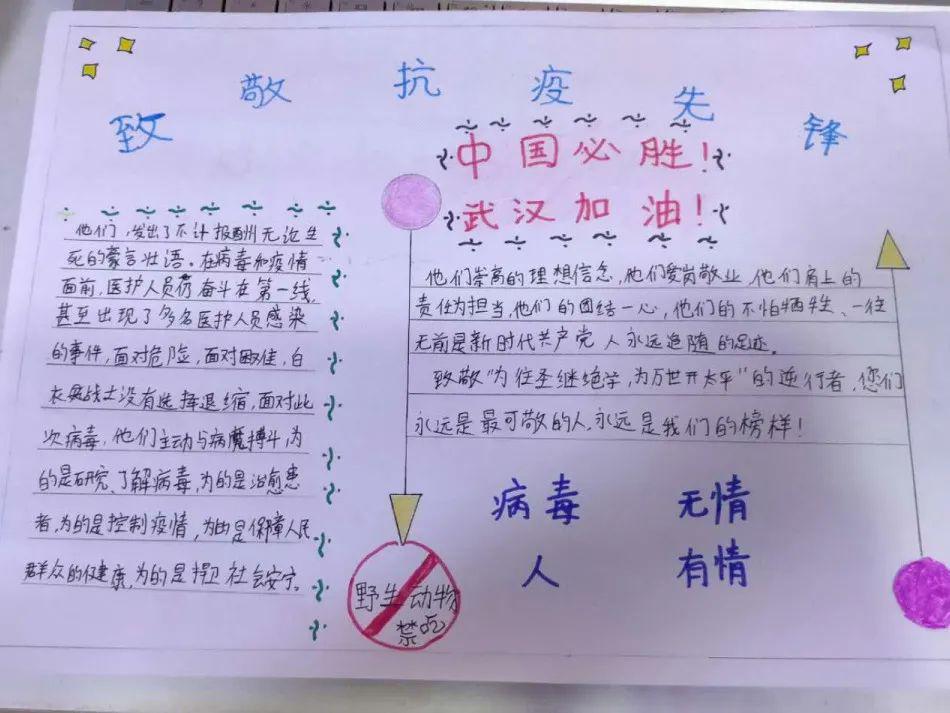 致敬抗疫先锋
中国必胜!
武汉加油!
他们,发出了不计报酬无论生
死的豪言壮语。在病毒和疫情
面前,医护人员仍奋斗在第一线,
甚至出现了多名医护人员感染
的事件,面对危险,面对困难,白
衣战士没有选择退缩,面对此
次病毒,他们主动与病魔搏斗,为
的是研究、了解病毒,为的是治愈患
者,为的是控制疫情,为的是保障人民
群众的健康,为的是捍卫社会安宁。
他们崇高的理想信念,他们爱岗敬业,他们肩上的
责任为担当,他们的团结一心,他们的不怕牺牲、一往
无前是新时代共产党人永远追随的足迹。
致敬"为往圣继绝学,为万世开太平"的逆行者,您们
永远是最可敬的人,永远是我们的榜样!
病毒 无情
人 有情
野生动物
禁吃